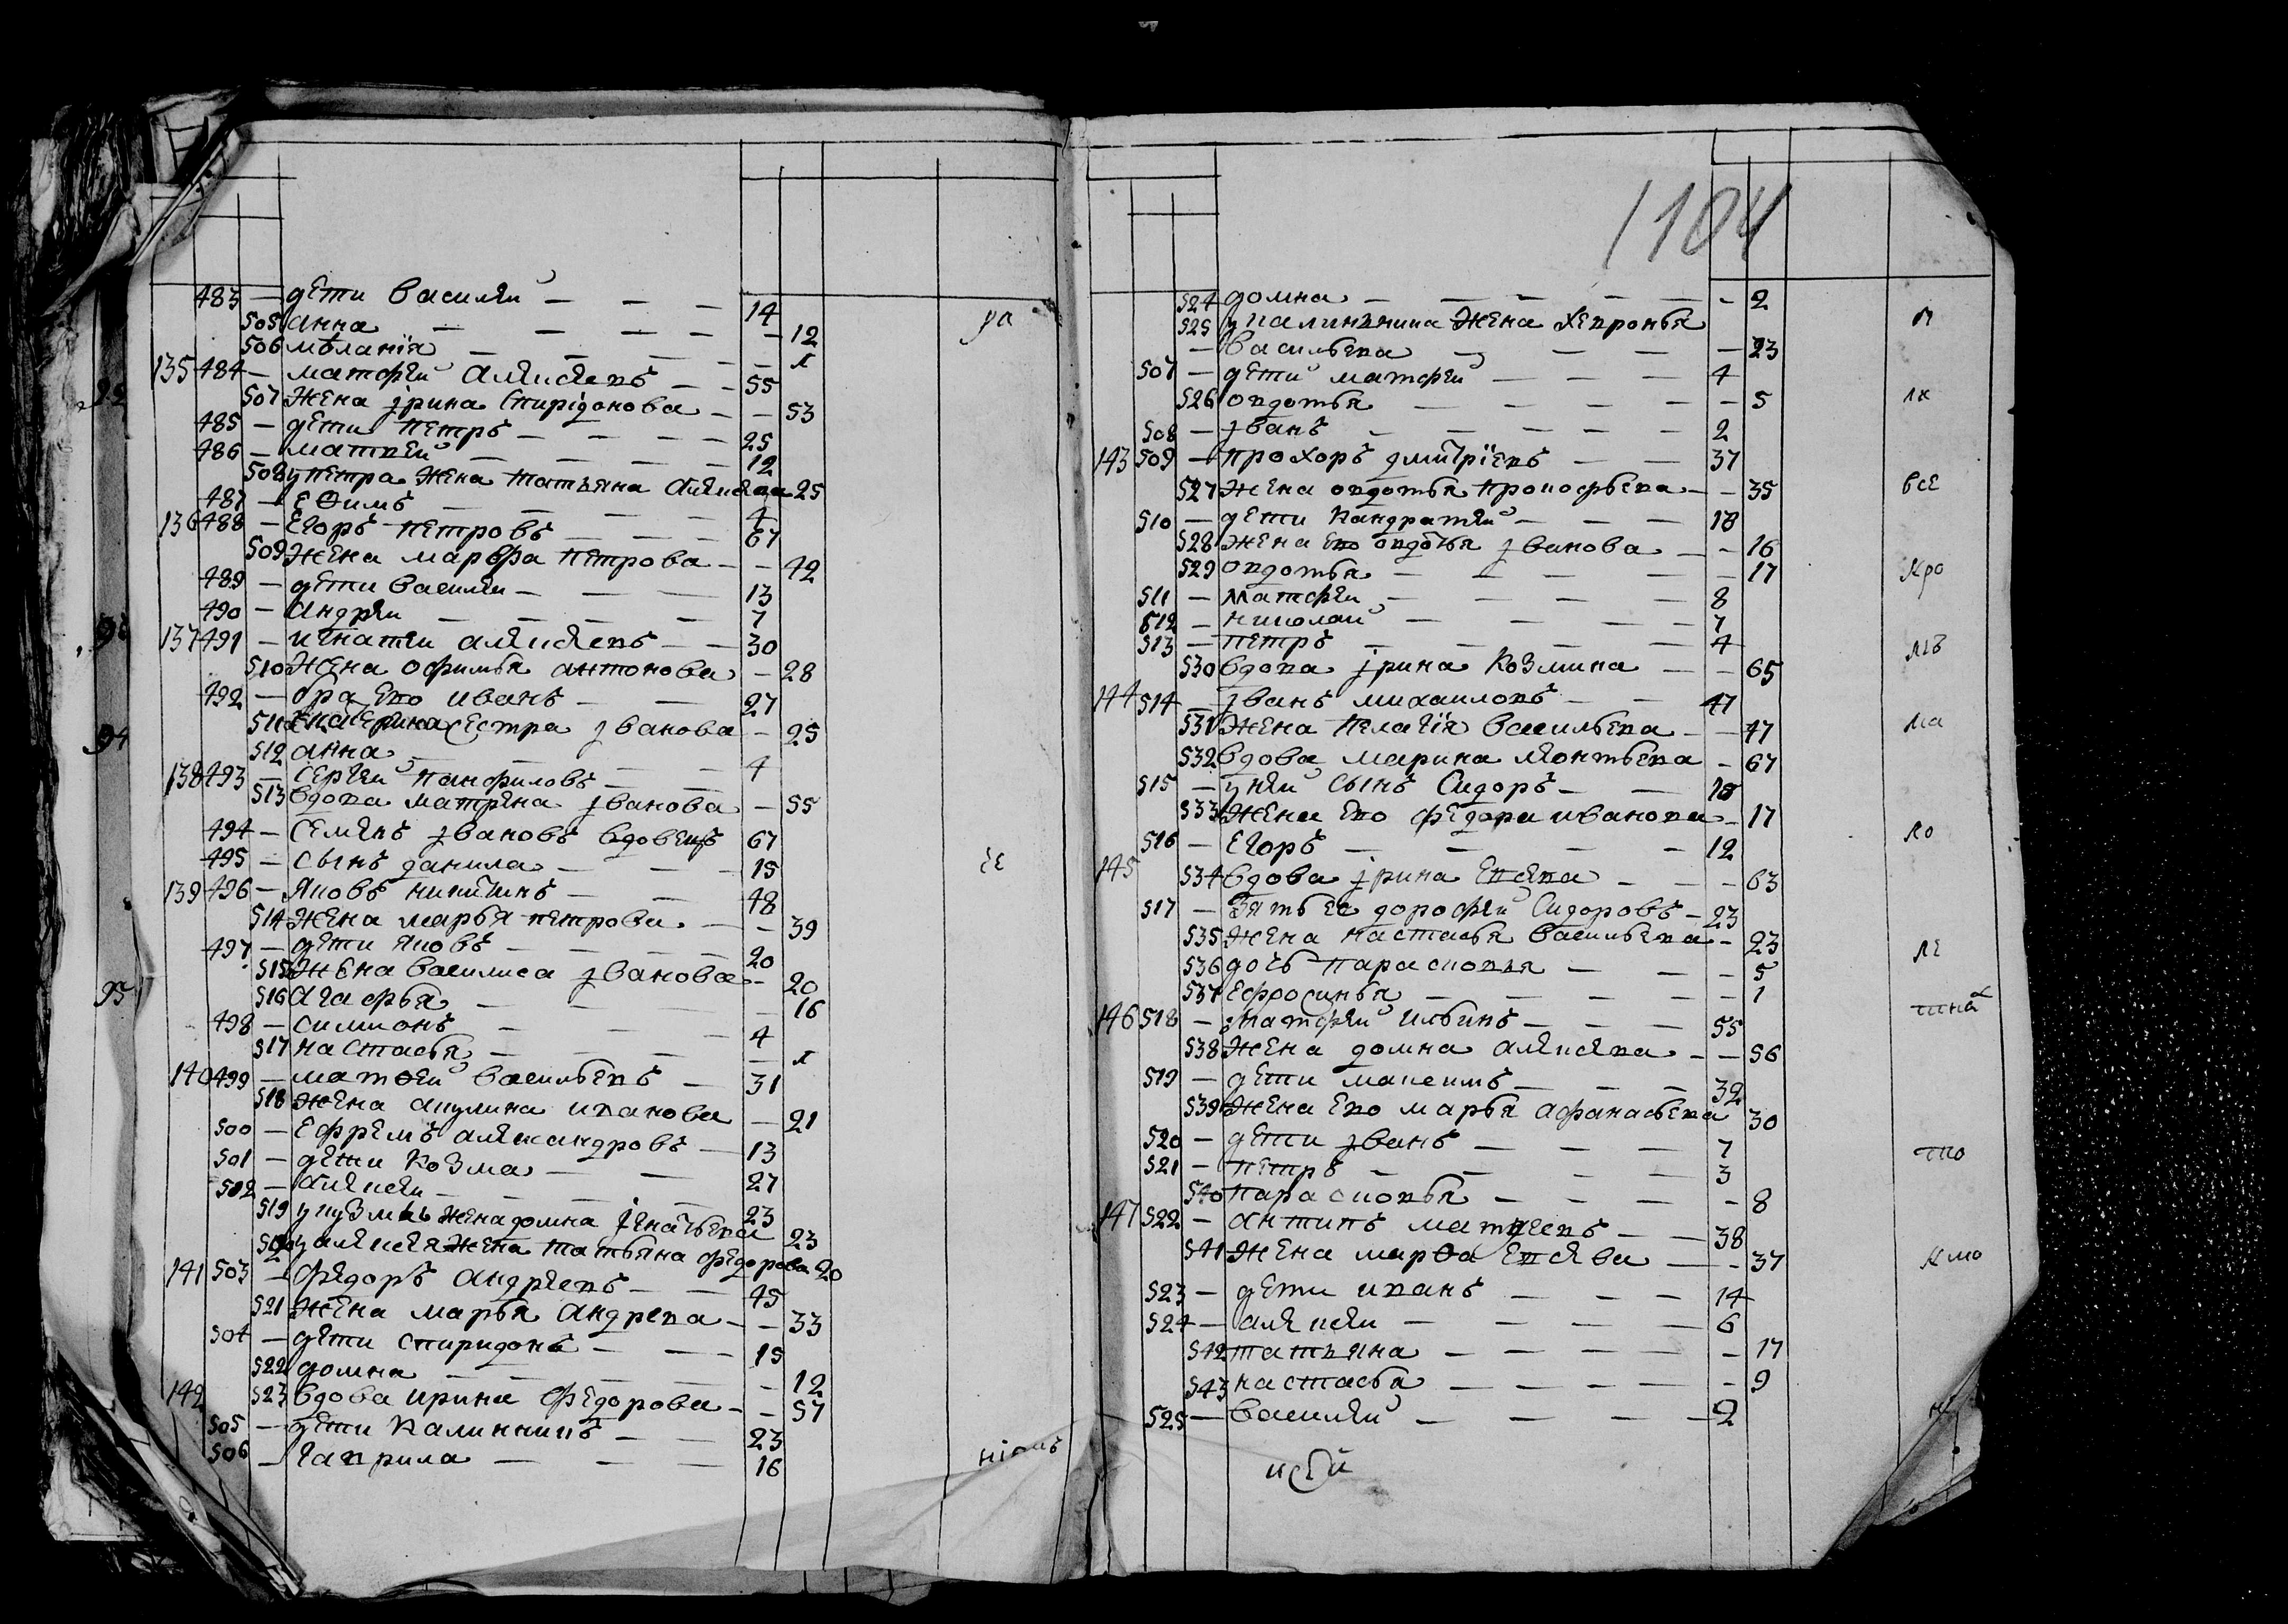 483 — дети василеи — — — 14
505 анна — — — — 12
506 меланiя — — — 1
135 484 — матфеи алексеевъ — — 55
507 жена iрина спирiдонова — — 53
485 — дети петръ — — — 25
486 — матвеи — — — 12
508 у петра жена татьяна алексеева 25
487 — еѳимъ — — — 4
136 488 — егоръ петровъ — — — 67
509 жена марфа петрова — — 42
489 — дети василеи — — — 13
490 — андреи — — — 7
137 491 — игнатеи алексеевъ — — 30
510 жена офимья антонова — 28
492 — бра его иванъ — — 27
511 екатерина сестра iванова — 25
512 анна — — — 4
138 493 — сергеи панфиловъ — —
513 вдова матрена iванова — 55
494 — семенъ iвановъ вдовецъ 67
495 — сынъ данила — — — 15
139 496 — яковъ никитинъ — — 48
514 жена марья петрова — — 39
497 — дети яковъ — — — 20
515 жена василиса iванова — 20
516 агафья — — — 16
498 — симионъ — — 4
517 настасья — — — 1
140 499 — матѳеи васильевъ — 31
518 жена акулина иванова — 21
500 — ефремъ александровъ — 13
501 — дети козма — — 27
502 — алексеи — — — 23
519 у кузмы жена домна iгнатьева 23
у алексея жена татьяна федорова 20
141 503 — федоръ андреевъ — — 45
521 жена марья андрева — — 33
504 — дети спиридонъ — — — 15
522 домна — — — — 12
142 523 вдова ирина федорова — — 57
505 — дети калинникъ — — 23
506 — гаврила — — — 16
ра
се
нiокъ
1104
524 домна — — — — — 2
525 у калинъника жена хевронья
— васильева — — — — 23
507 — дети матфеи — — — 4
526 овдотья — — — — 5
508 — iванъ — — — — — 2
143 509 — прохоръ дмитрiевъ — — 37
527 жена овдотья прокофьева — — 35
510 — дети кандратеи — — — 18
528 жена его овдотья iванова — — 16
529 овдотья — — — — — 17
511 — матфеи — — — — 8
512 — николаи — — — — 7
513 — петръ — — — — 4
530 вдова iрина козмина — — 65
144 514 — iванъ михаиловъ — — 47
531 жена пелагiя васильева — — 47
532 вдова марина леонтьева — 67
515 — у неи сынъ сидоръ — — 18
533 жена его федора иванова — 17
516 — егоръ — — — — 12
145 534 вдова iрина евсева — — — 63
517 — зять ее дорофеи сидоровъ — 23
535 жена настасья васильева — 23
536 дочь парасковья — — — 5
537 ефросинья — — — — — 1
146 518 — матфеи ильинъ — — — 55
538 жена домна алексева — — 56
519 — дети максимъ — — — 32
539 жена его марья афанасьева 30
520 — дети iванъ — — — 7
521 — петръ — — — — 3
540 парасковья — — — — 8
147 522 — антипъ матвеевъ — — 38
541 жена марѳа евсева — — 37
523 — дети иванъ — — — 14
524 — алексеи — — — — 6
542 татьяна — — — — — 17
543 настасья — — — — — 9
525 — василеи — — — — 2
все
кро
ма
ко
ле